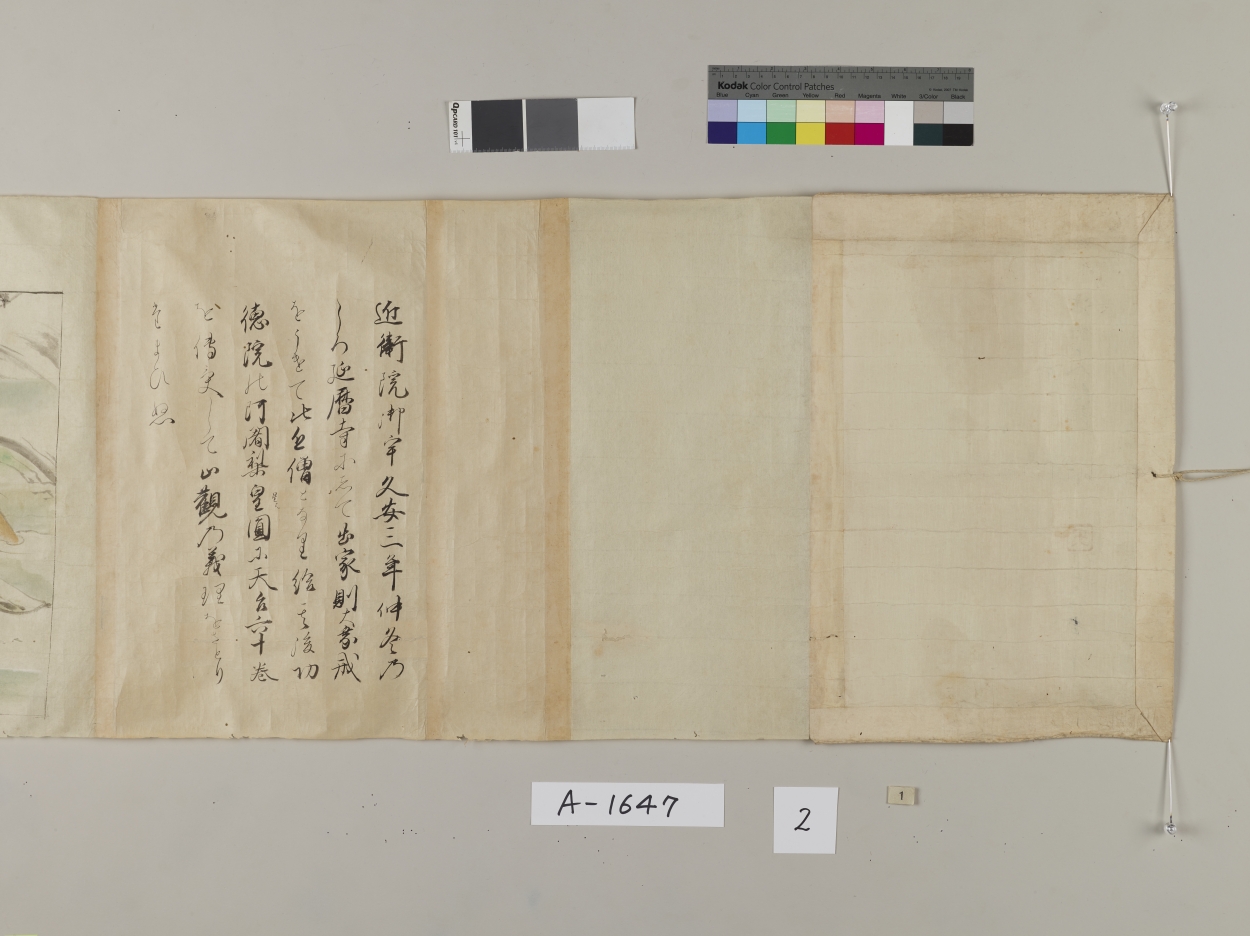 近衛院御宇久安三年仲冬乃
ころ延暦寺にして出家則大乗戒
をうけて比丘僧となり給其後功
徳院の阿闍梨皇圓に天台六十巻
を傳受して山觀乃義理をさとり
たまひぬ
QPCARD 101
Kodak Color Control Patches
Blue Cyan Green Yellow Red Magenta White 3/Color Black
A-1647
2
1